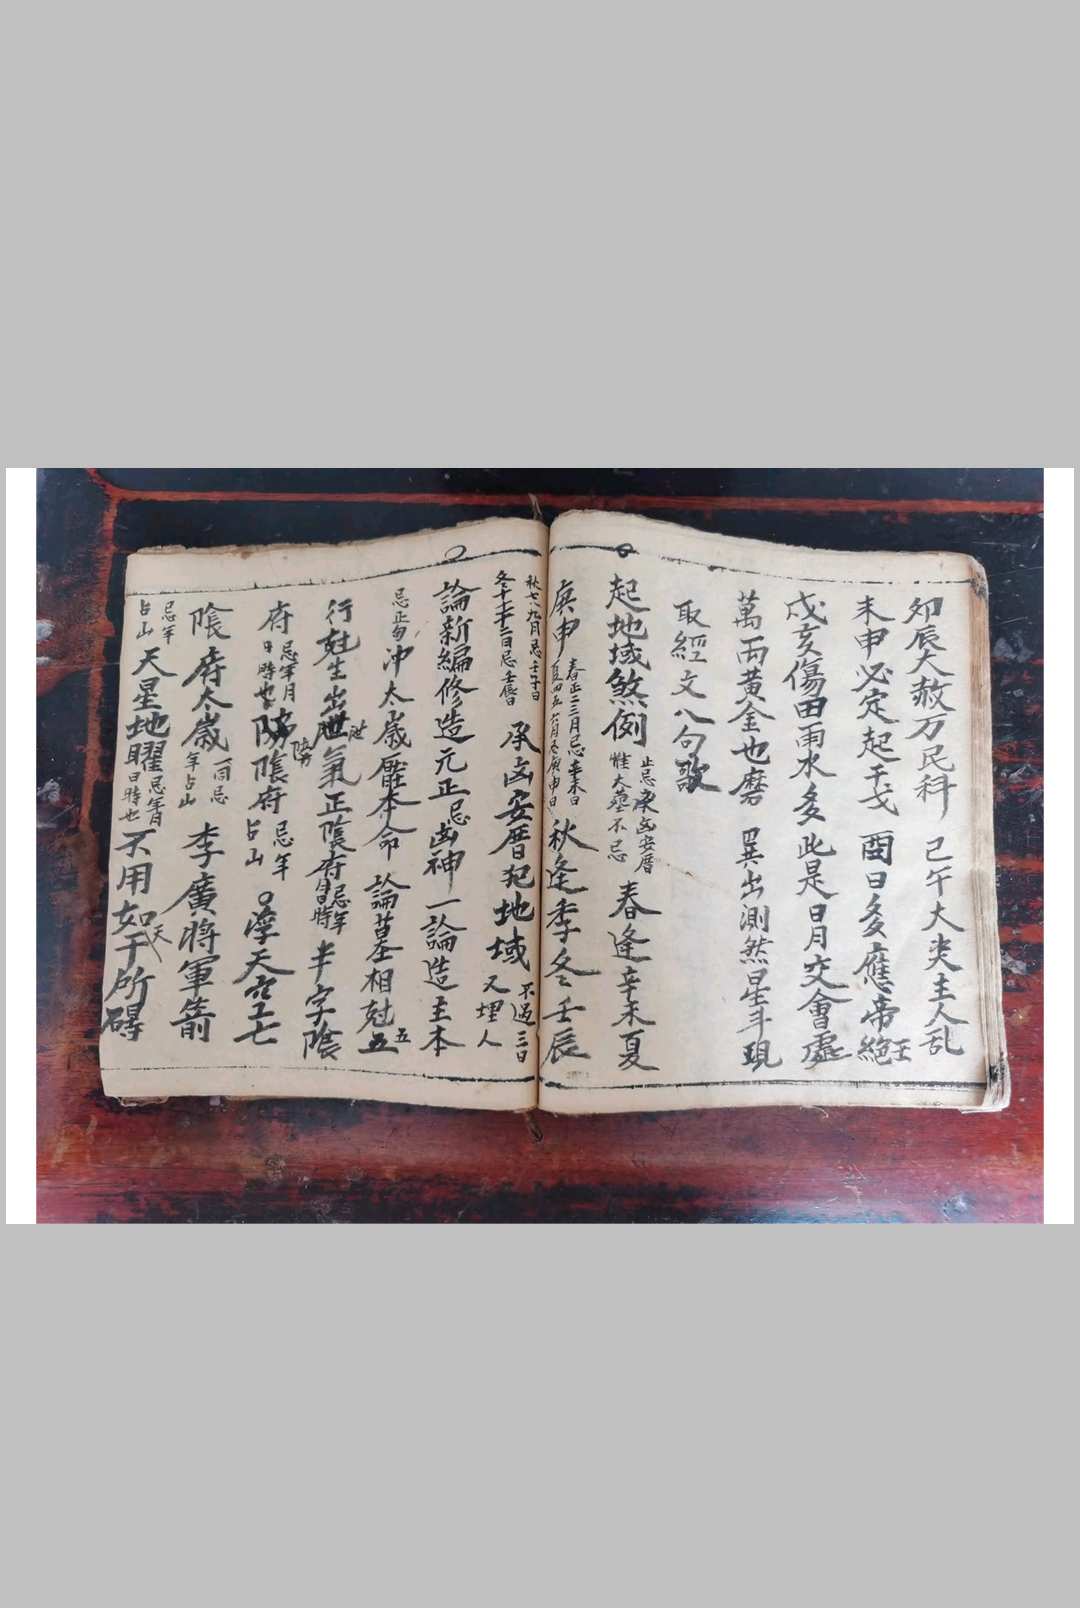 卯辰大赦万民科 己午大关主人乱
未申必定起干戈 酉日多應帝絕王
戌亥傷田雨水多 此是日月交會處
萬両黃金也磨 巽出測然星斗現
取經文八句歌
起地域煞例 止忌承凶安厝惟大墓不忌 春逢辛未夏
庚申 春正二三月忌辛未日夏四五六月忌庚申日 秋逢季冬壬辰
秋七八九月忌壬子日冬十十一十二日忌壬辰日 承凶安厝犯地域 不過三日又埋人
論新編修造元正忌凶神一論造主本
忌正旬冲太歲壓本命 論墓相尅五
行尅生出泄氣正陰府忌年月日時 半字陰
府忌年月日時也 傍陰府忌年占山 浮天空七
陰府太歲一同忌年占山 李廣將軍箭
忌年占山 天星地曜忌年月日時也 不用如天干所碍